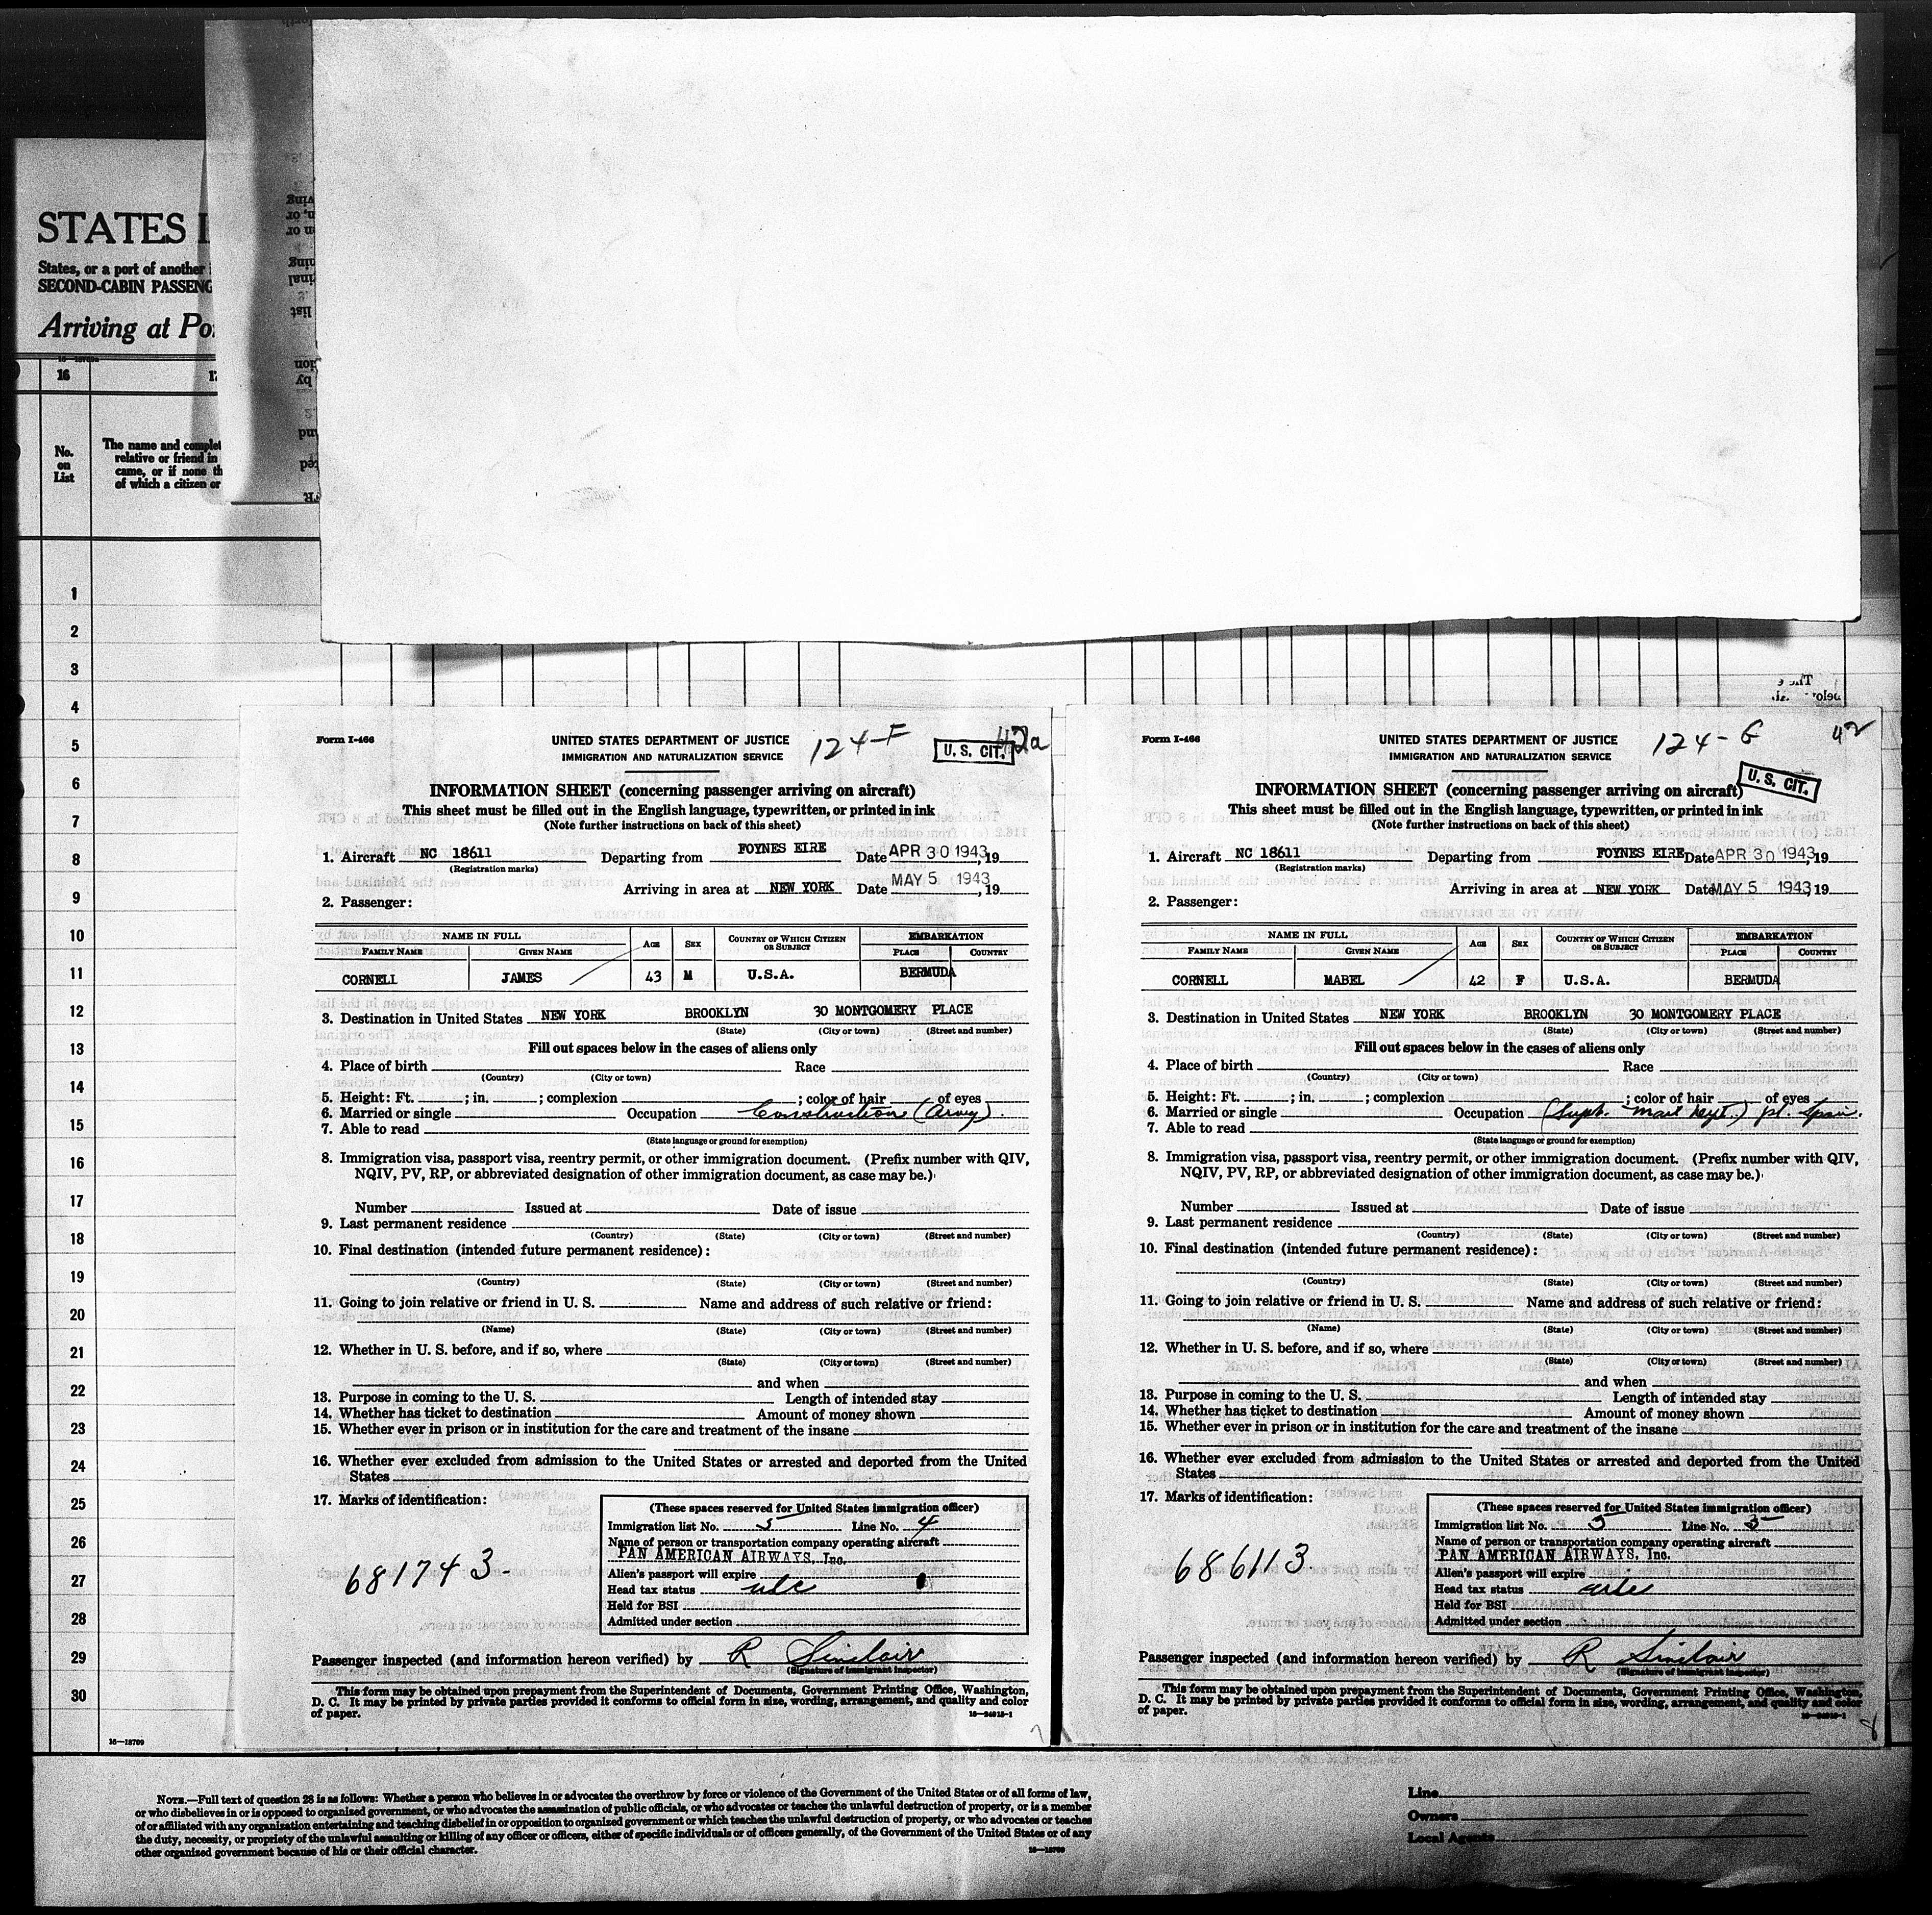 STATES
States, or a port of another
SECOND-CABIN PASSENG
Arriving at Po
16
No.
on
List
The name and complet
relative or friend in
came, or if none th
of which a citizen or
1
2
3
4
5
6
7
8
9
10
11
12
13
14
15
16
17
18
19
20
21
22
23
24
25
26
27
28
29
30
16—18709
Form I-466
UNITED STATES DEPARTMENT OF JUSTICE
124-F
IMMIGRATION AND NATURALIZATION SERVICE
U. S. CIT.
INFORMATION SHEET (concerning passenger arriving on aircraft)
This sheet must be filled out in the English language, typewritten, or printed in ink
(Note further instructions on back of this sheet)
1. Aircraft NC 18611 Departing from FOYNES EIRE Date APR 30 1943, 19
(Registration marks)
Arriving in area at NEW YORK Date MAY 5 1943, 19
2. Passenger:
NAME IN FULL AGE SEX COUNTRY OF WHICH CITIZEN OR SUBJECT EMBARKATION
FAMILY NAME GIVEN NAME PLACE COUNTRY
CORNELL JAMES 43 M U.S.A. BERMUDA
3. Destination in United States NEW YORK BROOKLYN 30 MONTGOMERY PLACE
(State) (City or town) (Street and number)
Fill out spaces below in the cases of aliens only
4. Place of birth Race
(Country) (City or town)
5. Height: Ft. ; in. ; complexion ; color of hair of eyes
6. Married or single Occupation Construction (Army)
7. Able to read
(State language or ground for exemption)
8. Immigration visa, passport visa, reentry permit, or other immigration document. (Prefix number with QIV,
NQIV, PV, RP, or abbreviated designation of other immigration document, as case may be.)
Number Issued at Date of issue
9. Last permanent residence
(Country) (State) (City or town) (Street and number)
10. Final destination (intended future permanent residence):
(Country) (State) (City or town) (Street and number)
11. Going to join relative or friend in U. S. Name and address of such relative or friend:
(Name) (State) (City or town) (Street and number)
12. Whether in U. S. before, and if so, where
(State) (City or town) (Street and number)
and when
13. Purpose in coming to the U. S. Length of intended stay
14. Whether has ticket to destination Amount of money shown
15. Whether ever in prison or in institution for the care and treatment of the insane
16. Whether ever excluded from admission to the United States or arrested and deported from the United
States
17. Marks of identification:
(These spaces reserved for United States immigration officer)
Immigration list No. 5 Line No. 4
Name of person or transportation company operating aircraft
PAN AMERICAN AIRWAYS, Inc.
681743-
Alien's passport will expire
Head tax status
Held for BSI
Admitted under section
Passenger inspected (and information hereon verified) by R Sinclair
(Signature of immigrant inspector)
This form may be obtained upon prepayment from the Superintendent of Documents, Government Printing Office, Washington,
D. C. It may be printed by private parties provided it conforms to official form in size, wording, arrangement, and quality and color
of paper.
Form I-466
UNITED STATES DEPARTMENT OF JUSTICE
124-G
42
IMMIGRATION AND NATURALIZATION SERVICE
U. S. CIT.
INFORMATION SHEET (concerning passenger arriving on aircraft)
This sheet must be filled out in the English language, typewritten, or printed in ink
(Note further instructions on back of this sheet)
1. Aircraft NC 18611 Departing from FOYNES EIRE Date APR 30 1943, 19
(Registration marks)
Arriving in area at NEW YORK Date MAY 5 1943, 19
2. Passenger:
NAME IN FULL AGE SEX COUNTRY OF WHICH CITIZEN OR SUBJECT EMBARKATION
FAMILY NAME GIVEN NAME PLACE COUNTRY
CORNELL MABEL 42 F U.S.A. BERMUDA
3. Destination in United States NEW YORK BROOKLYN 30 MONTGOMERY PLACE
(State) (City or town) (Street and number)
Fill out spaces below in the cases of aliens only
4. Place of birth Race
(Country) (City or town)
5. Height: Ft. ; in. ; complexion ; color of hair of eyes
6. Married or single Occupation (Supt. Mail Dept.)
7. Able to read
(State language or ground for exemption)
8. Immigration visa, passport visa, reentry permit, or other immigration document. (Prefix number with QIV,
NQIV, PV, RP, or abbreviated designation of other immigration document, as case may be.)
Number Issued at Date of issue
9. Last permanent residence
(Country) (State) (City or town) (Street and number)
10. Final destination (intended future permanent residence):
(Country) (State) (City or town) (Street and number)
11. Going to join relative or friend in U. S. Name and address of such relative or friend:
(Name) (State) (City or town) (Street and number)
12. Whether in U. S. before, and if so, where
(State) (City or town) (Street and number)
and when
13. Purpose in coming to the U. S. Length of intended stay
14. Whether has ticket to destination Amount of money shown
15. Whether ever in prison or in institution for the care and treatment of the insane
16. Whether ever excluded from admission to the United States or arrested and deported from the United
States
17. Marks of identification:
(These spaces reserved for United States immigration officer)
Immigration list No. 5 Line No. 5
Name of person or transportation company operating aircraft
PAN AMERICAN AIRWAYS, Inc.
686113
Alien's passport will expire
Head tax status
Held for BSI
Admitted under section
Passenger inspected (and information hereon verified) by R Sinclair
(Signature of immigrant inspector)
This form may be obtained upon prepayment from the Superintendent of Documents, Government Printing Office, Washington,
D. C. It may be printed by private parties provided it conforms to official form in size, wording, arrangement, and quality and color
of paper.
8
NOTE.—Full text of question 28 is as follows: Whether a person who believes in or advocates the overthrow by force or violence of the Government of the United States or of all forms of law,
or who disbelieves in or is opposed to organized government, or who advocates the assassination of public officials, or who advocates or teaches the unlawful destruction of property, or is a member
of or affiliated with any organization entertaining and teaching disbelief in or opposition to organized government or which teaches the unlawful destruction of property, or who advocates or teaches
the duty, necessity, or propriety of the unlawful assaulting or killing of any officer or officers, either of specific individuals or of officers generally, of the Government of the United States or of any
other organized government because of his or their official character.
Line
Owners
Local Agents